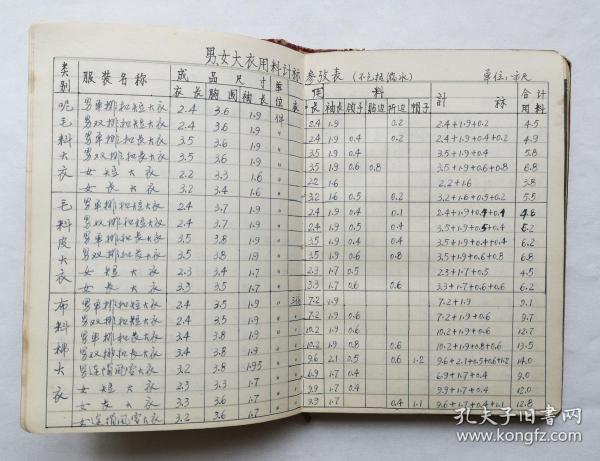 男女大衣用料计标参考表(不包括缩水) 单位:市尺
类别 服装名称 成品尺寸 单位 用料 计标 合计用料
衣长 胸围 袖长 衣长 袖长 领子 贴边 折边 帽子
呢毛料大衣
男单排扣短大衣 2.4 3.6 1.9 件 2.4 1.9 0.2 2.4+1.9+0.2 4.5
男双排扣短大衣 2.4 3.6 1.9 〃 2.4 1.9 0.4 0.2 2.4+1.9+0.4+0.2 4.9
男单排扣长大衣 3.5 3.6 1.9 〃 3.5 1.9 0.4 3.5+1.9+0.4 5.8
男双排扣长大衣 3.5 3.6 1.9 〃 3.5 1.9 0.6 0.8 3.5+1.9+0.6+0.8 6.8
女短大衣 2.2 3.3 1.6 〃 2.2 1.6 2.2+1.6 3.8
女长大衣 3.2 3.4 1.6 〃 3.2 1.6 0.5 0.2 3.2+1.6+0.5+0.2 5.5
毛料皮大衣
男单排扣短大衣 2.4 3.7 1.9 〃 2.4 1.9 0.4 0.1 4.8
男双排扣短大衣 2.4 3.7 1.9 〃 2.4 1.9 0.5 0.4
男单排扣长大衣 3.5 3.8 1.9 〃 3.5 1.9 0.4 0.4 3.5+1.9+0.4+0.4 6.2
男双排扣长大衣 3.5 3.8 19 〃 3.5 1.9 0.6 0.8 3.5+1.9+0.6+0.8 6.8
女短大衣 2.3 3.4 1.7 〃 2.3 1.7 0.5 2.3+1.7+0.5 4.5
女长大衣 3.3 3.5 1.7 〃 3.3 1.7 0.6 0.6 3.3+1.7+0.6+0.6 6.2
布料棉大衣
男单排扣短大衣 2.4 3.5 1.9 7.2 1.9 7.2+1.9 9.1
男双排扣短大衣 2.4 3.5 1.9 〃 7.2 1.9 0.6 7.2+1.9+0.6 9.7
男单排扣长大衣 3.4 3.8 1.9 〃 10.2 1.9 0.6 10.2+1.9+0.6 12.7
男双排扣长大衣 3.4 3.8 1.9 〃 10.2 1.9 0.8 0.6 10.2+1.9+0.8+0.6 13.5
男连帽风雪大衣 3.2 3.8 1.95 〃 9.6 2.1 0.5 0.6 1.2 9.6+2.1+0.5+0.6+1.2 14.0
女短大衣 2.3 3.3 1.7 〃 6.9 1.7 0.4 6.9+1.7+0.4 9.0
女长大衣 3.3 3.6 1.7 〃 9.9 1.7 0.4 9.9+1.7+0.4 12.0
女连帽风雪大衣 3.2 3.6 1.7 〃 1.7 0.4 1.1 9.6+1.7+0.4+1.1 12.8
孔夫子旧书网
www.kongfz.com